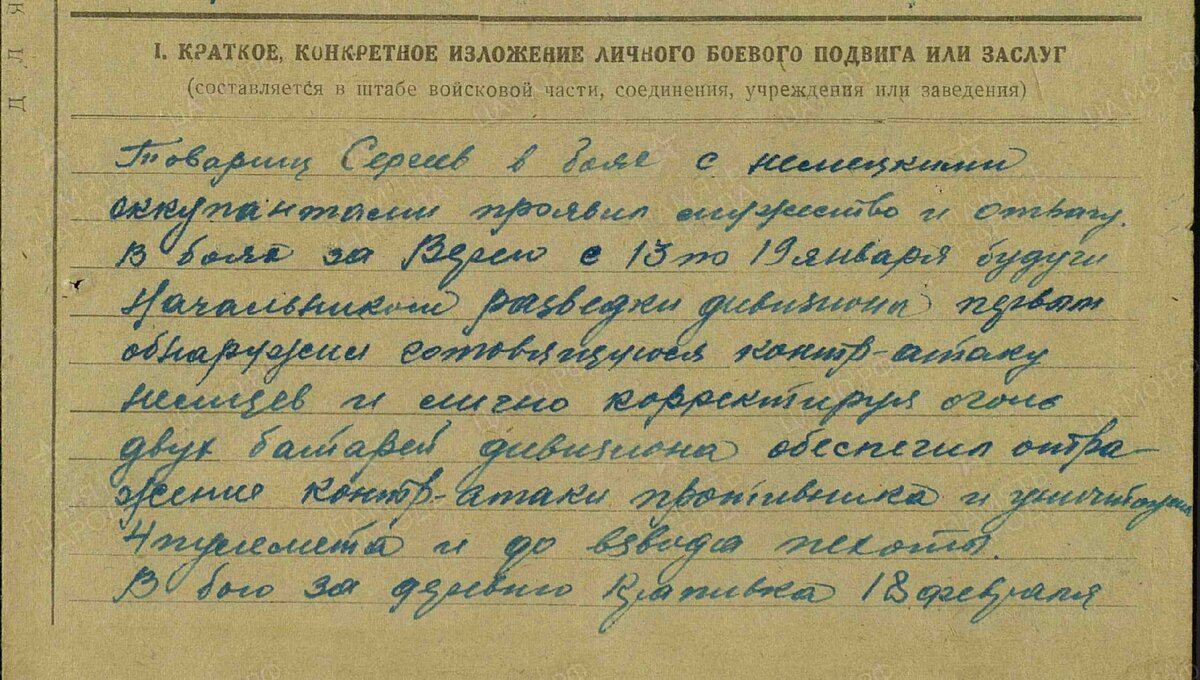 I. КРАТКОЕ, КОНКРЕТНОЕ ИЗЛОЖЕНИЕ ЛИЧНОГО БОЕВОГО ПОДВИГА ИЛИ ЗАСЛУГ
(составляется в штабе войсковой части, соединения, учреждения или заведения)
Товарищ Сергеев в боях с немецкими
оккупантами проявил мужество и отвагу.
В боях за Верею с 13 по 19 января будучи
начальником разведки дивизиона первым
обнаружил готовящуюся контр-атаку
немцев и лично корректируя огонь
двух батарей дивизиона обеспечил отра-
жение контр-атаки противника и уничтожил
4 пулемета и до взвода пехоты.
В бою за деревню Крапивка 18 февраля